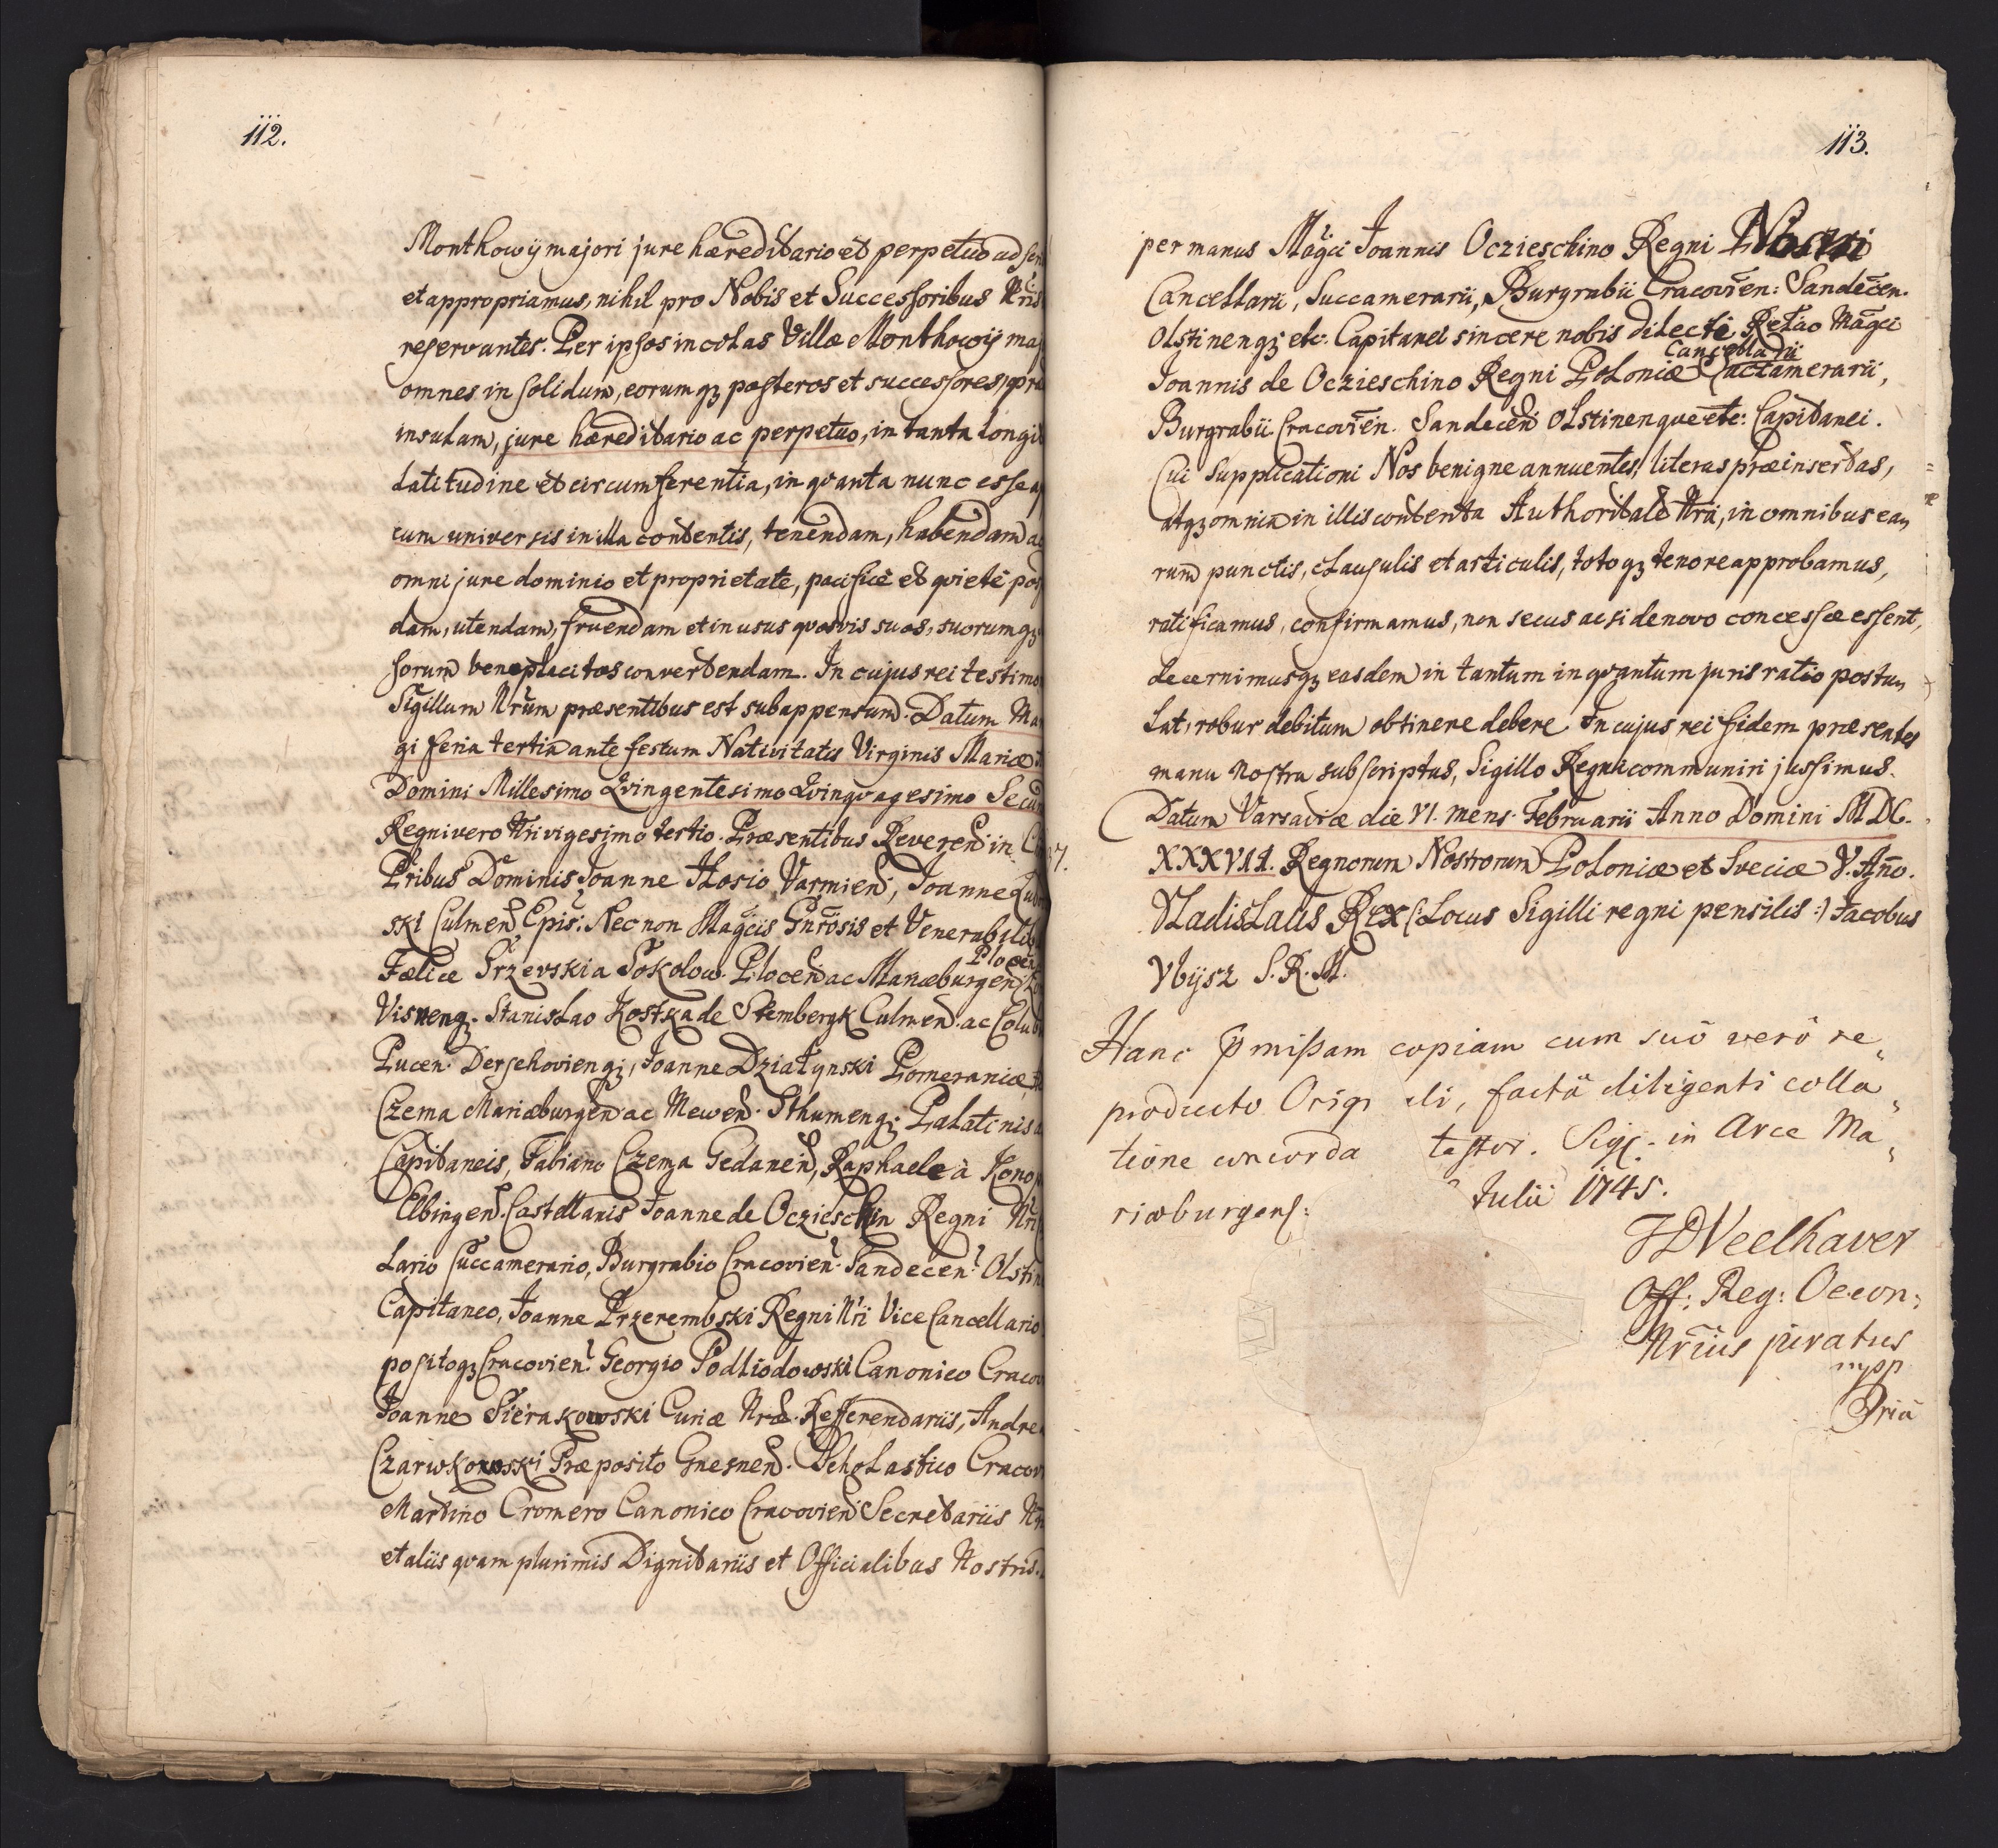 112.
Monthowij majori jure hæreditario et perpetuo ad
et appropriamus, nihil pro Nobis et Successoribus Nris
reservantes. Per ipsos incolas Villæ Monthowij maj
omnes in solidum, eorumq3 posteros et successores, præ
insulam, jure hæreditario ac perpetuo, in tanta longit
latitudine et circumferentia, in qvanta nunc esse
cum universis in illa contentis, tenendam, habendam ac
omni jure dominio et proprietate, pacificè et qvietè pos
dam, utendam, fruendam et in usus qvosvis suos, suorumq3
sorum beneplacitos convertendam. In cujus rei testimo
Sigillum Nrum præsentibus est subappensum. Datum Ma
gi feria tertia ante festum Nativitatis Virginis Mariæ
Domini Millesimo Qvingentesimo Qvinqvagesimo Secun
Regni vero Nri vigesimo tertio. Præsentibus Reverend in
Pribus Dominis Joanne Hosio Varmien, Joanne Lub
ski Culmen Epis: Nec non Magcis Gnrosis et Venerabilib
Plocen
Fælice Srzevski a Sokolow. Plocen ac Mariæburgen
Visneng. Stanislao Kostka de Stembergk Culmen. ac Colub
Pucen. Dersehovienq3, Joanne Dziatynski Pomeraniæ,
Czema Mariæburgen ac Mewen. Sthumenq3 Palatinis
Capitaneis, Fabiano Czema Gedanen, Raphaele à Kono
Elbingen. Castellanis Joanne de Oczieschin Regni Nri
lario Succamerario, Burgrabio Cracovien. Sandecen. Olstin
Capitaneo, Joanne Przerembski Regni Nri Vice Cancellario
positoq3 Cracovien. Georgio Podliodowski Canonico Cracov
Joanne Sierakowski Curiæ Nræ. Refferendariis, Andre
Czarwkowski Præposito Gnesnen. Scholastico Cracov
Martino Cromero Canonico Cracovien Secretariis
et aliis qvam plurimis Dignitariis et Officialibus Nostris.
113.
per manus Magci Joannis Oczieschino Regni Nostri
Cancellarii, Succamerarii, Burgrabii Cracovien: Sandecen.
Olstinenq3 etc. Capitanei sincere nobis dilecti. Relao Magci
Cancellarii
Joannis de Oczieschino Regni Poloniæ Cactamerarii,
Burgrabii Cracovien. Sandecen Olstinenque etc: Capitanei.
Cui supplicationi Nos benigne annuentes, literas præinsertas,
atq3 omnia in illis contenta Authoritate Nra, in omnibus ea,,
rum punctis, clausulis et articulis, totoq3 tenore approbamus,
ratificamus, confirmamus, non secus ac si de novo concessæ essent,
decernimusq3 easdem in tantum in qvantum juris ratio postu,,
lat, robur debitum obtinere debere. In cujus rei fidem præsentes
manu Nostra subscriptas, Sigillo Regni communiri jussimus.
Datum Varsaviæ die VI. mens. Februarii Anno Domini MDC.
XXXVII. Regnorum Nostrorum Poloniæ et Sveciæ V. Año.
Vladislaus Rex (: Locus Sigilli regni pensilis :) Jacobus
Vbijsz S. R. M.
Hanc pmissam copiam cum suo vero re,,
producto Orig li, factâ diligenti colla,,
tione concorda testor. Sig. in Arce Ma,,
riæburgens: Julii 1745.
JDVeelhaver
Off: Reg: Oecon:
Nrius juratus
mpp